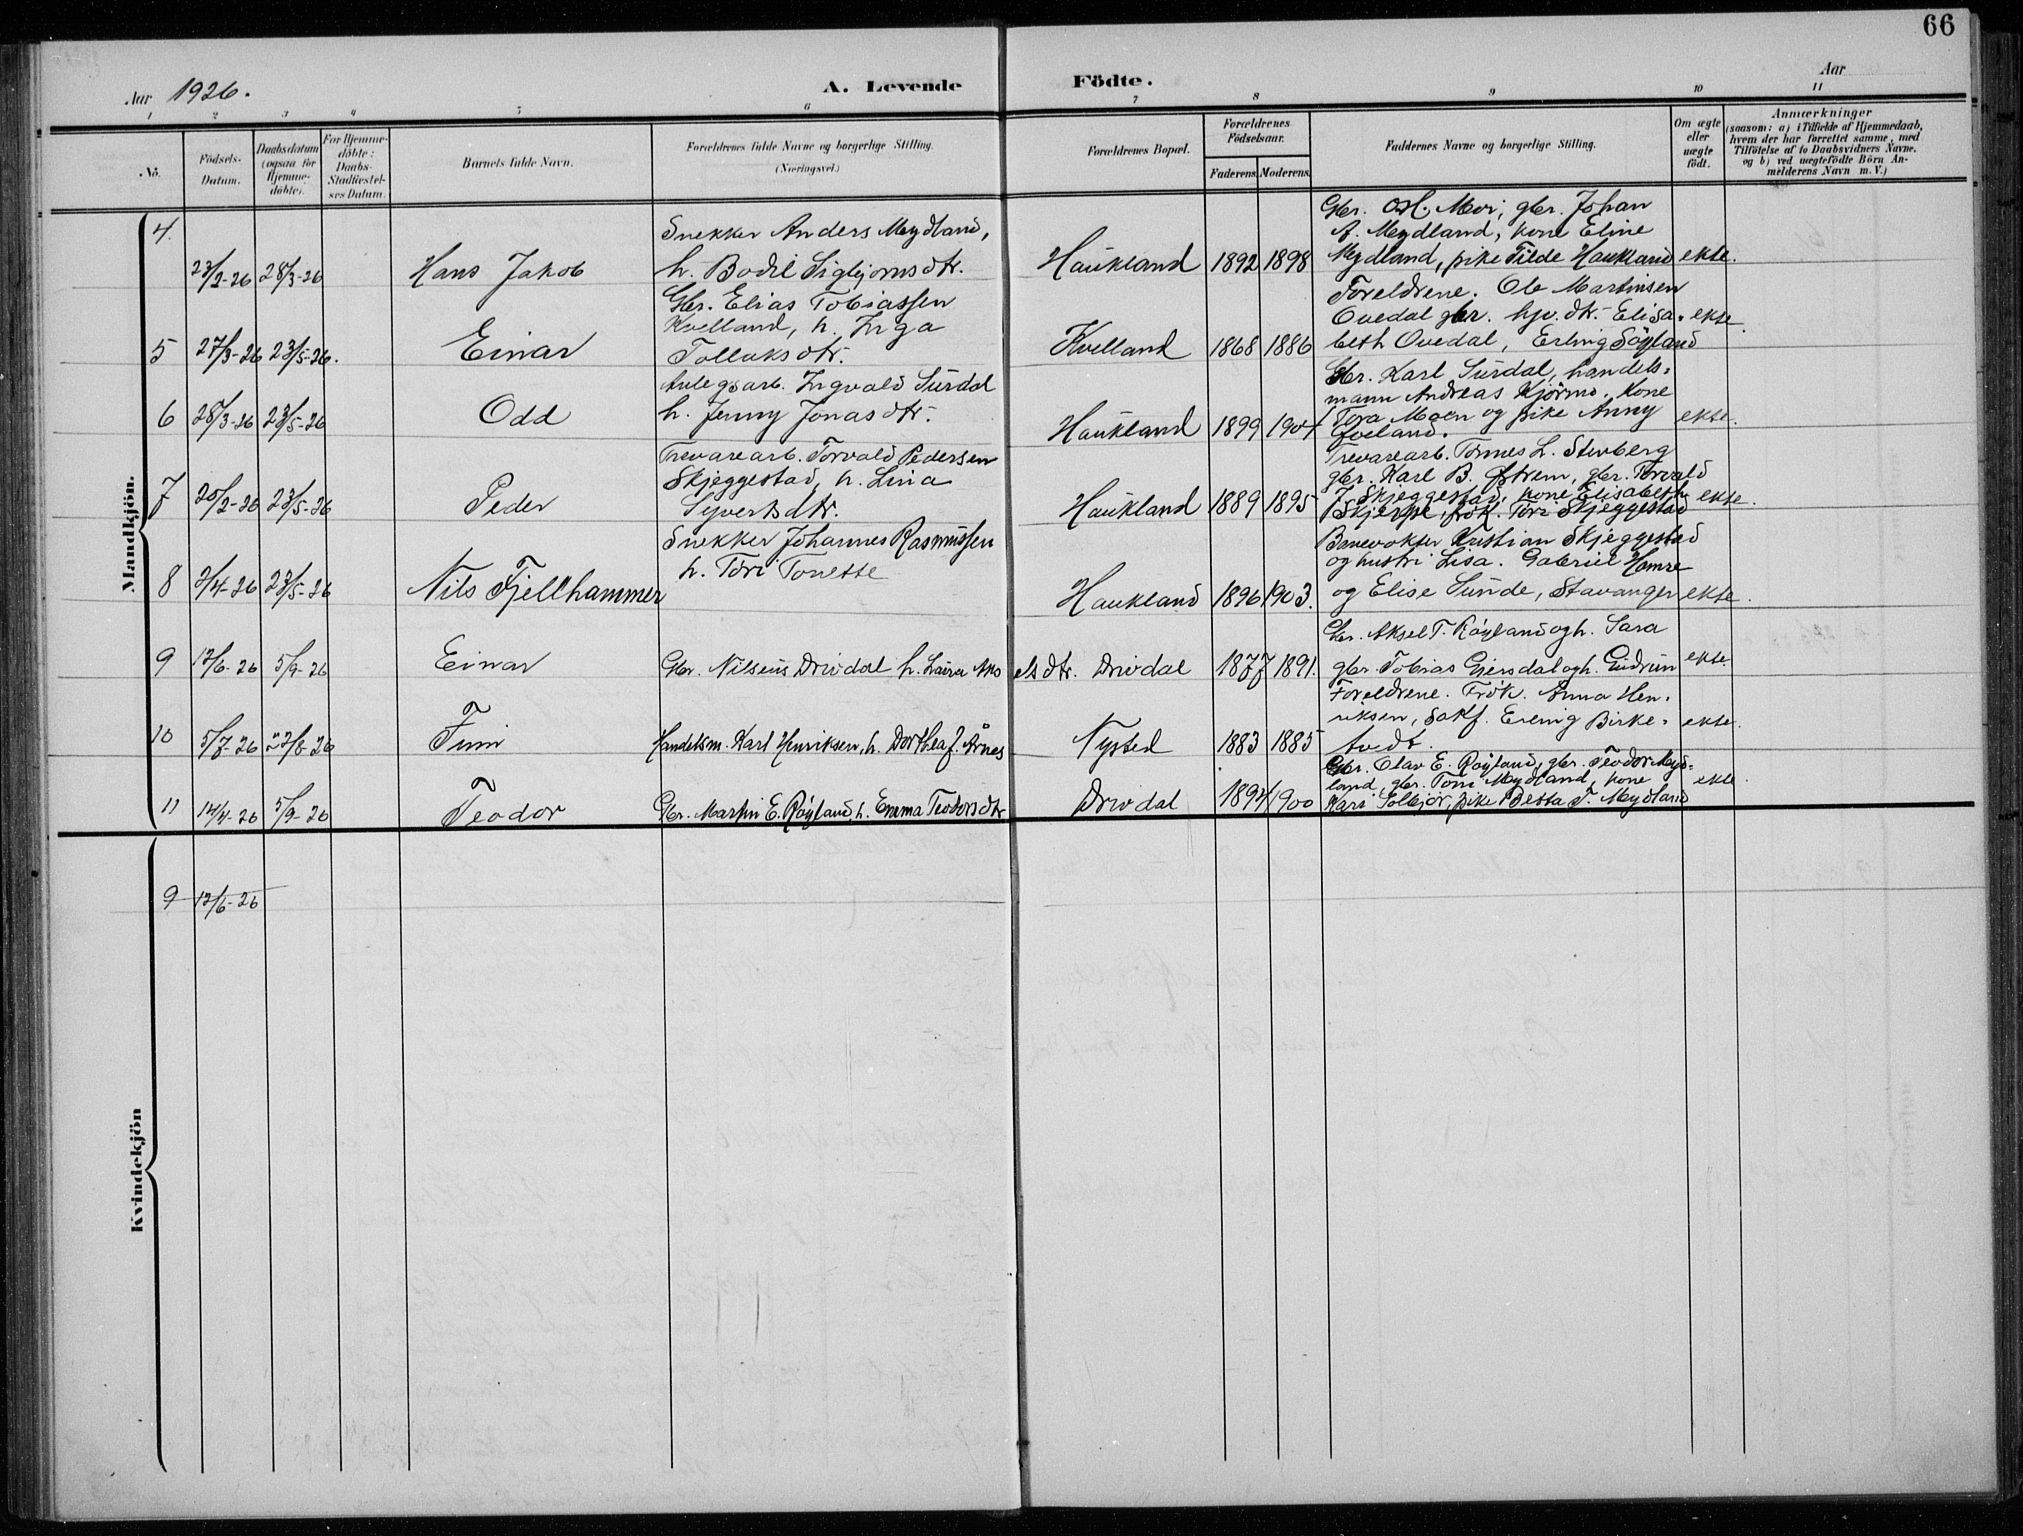 66
Aar 1926.
A. Levende Födte.
Aar
1 2 3 4 5 6 7 8 9 10 11
No.
Födsels-Datum.
Daabsdatum (ogsaa for Hjemme-döbte).
For Hjemme-döbte: Daabs-Stadfæstel-ses Datum.
Barnets fulde Navn.
Forældrenes fulde Navne og borgerlige Stilling.
(Næringsvei.)
Forældrenes Bopæl.
Forældrenes Födselsaar.
Faderens. Moderens.
Faddernes Navne og borgerlige Stilling.
Om ægte eller uægte födt.
Anmærkninger
(saasom: a) i Tilfælde af Hjemmedaab,
hvem der har forrettet samme, med
Tilföielse af to Daabsvidners Navne,
og b) ved uægtefödte Börn An-
melderens Navn m. V.)
Mandkjön.
4. 23/2-26 28/3-26 Hans Jakob
Snekker Anders Mydland,
h. Bodil Sigbjørnsdtr.
Haukland 1892 1898
Gbr. Moi, gbr. Johan
A. Mydland, kone Eline
Mydland, pike Tilde Haukland ekte.
5 27/3-26 23/5-26. Einar
Gbr. Elias Tobiassen
Kvelland, h. Inga
Tollaksdtr.
Kvelland 1868 1886
Foreldrene. Ole Martinsen
Ovedal gbr. hjv. dtr. Elisa- ekte.
beth Ovedal, Erling Søyland
6 28/3-26 23/5-26 Odd
Anlegsarb. Ingvald Surdal
h. Jenny Jonasdtr.
Haukland 1899 1901
Gbr. Karl Surdal, handels-
mann Andreas Kjørmo, kone
Tora Moen og pike Anny ekte.
7 20/2-26 23/5-26 Peder
Trevarearb. Torvald Pedersen
Skjeggestad, h. Lina
Syvertsdtr.
Haukland 1889 1895
Trevarearb. L. Stenberg
gbr. Karl B. Østrem, gbr. Torvald
Skjeggestad, kone Elisabeth ekte.
Skjerpe, frøk. Tori Skjeggestad
8 3/4-26 23/5-26 Nils Fjellhammer
Snekker Johannes Rasmussen
h. Tori Tonette
Haukland 1896 1903.
Banevokter Kristian Skjeggestad
og hustri Lisa. Gabriel Homre
og Elise Sunde, Stavanger ekte.
9 12/6-26 5/9-26 Einar
Gbr. Nilseus Drivdal h. Laura Aks elsdtr. Drivdal 1877 1891.
Gbr. Aksel T. Røyland og h. Sara
gbr. Tobias Gjersdal og h. Gudrun ekte.
10 5/7-26 22/8-26 Finn
Handelsm. Karl Henriksen, h. Dorthea f. Årnes
Nysted 1883 1885
Foreldrene. Frøk. Anna Hen-
riksen, sakf. Erling Birke- ekte.
tvedt.
11 12/4-26 5/9-26 Teodor
Gbr. Martin E. Røyland, h. Emma Teodorsdtr
Drivdal 1894 1900
Gbr. Olav E. Røyland, gbr. Teodor Myd-
land, gbr. Toni Mydland, kone ekte.
Kari Solbjør, pike Betta T. Mydland
Kvindekjön
9 12/6-26